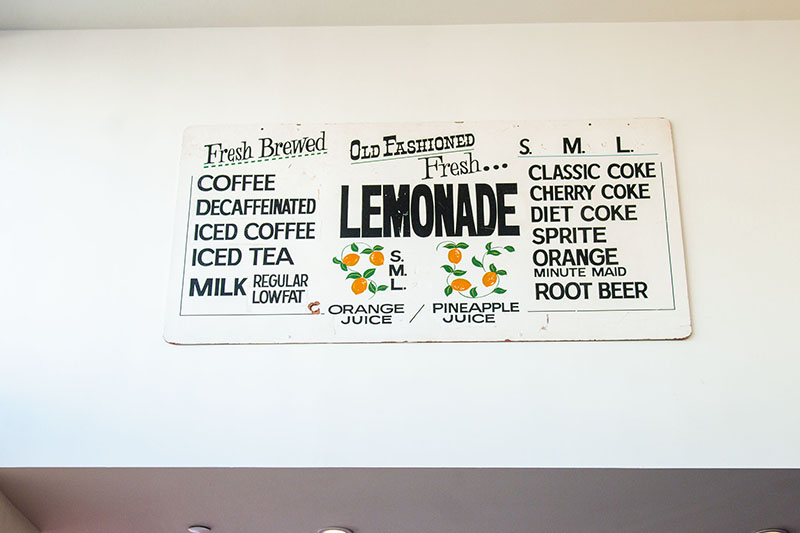 Fresh Brewed
COFFEE
DECAFFEINATED
ICED COFFEE
ICED TEA
MILK REGULAR
LOWFAT
OLD FASHIONED
Fresh...
LEMONADE
S.
M.
L.
ORANGE JUICE / PINEAPPLE JUICE
S. M. L.
CLASSIC COKE
CHERRY COKE
DIET COKE
SPRITE
ORANGE
MINUTE MAID
ROOT BEER